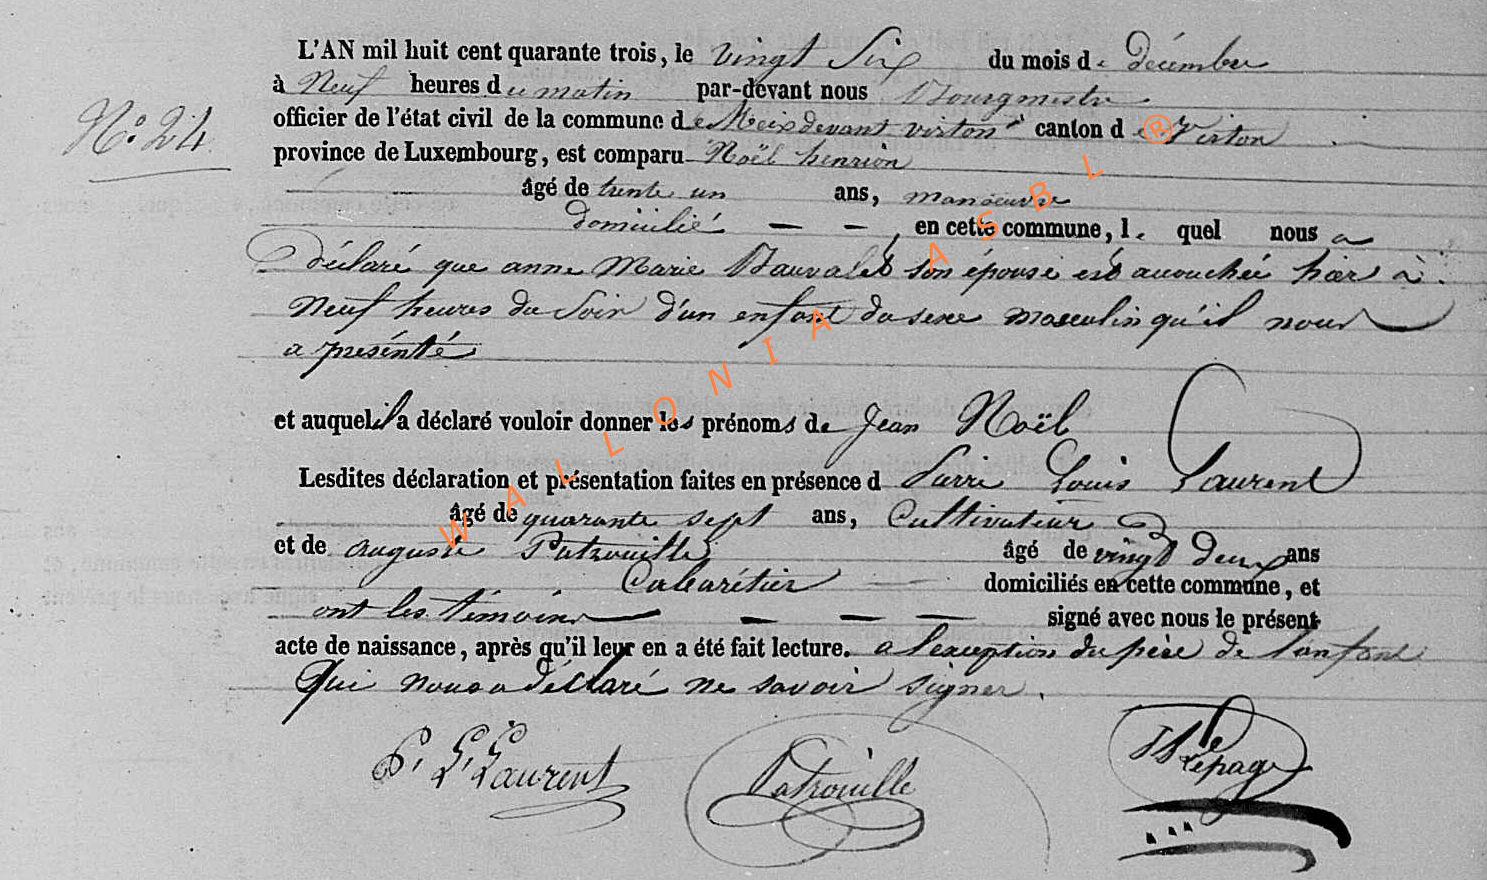 L'AN mil huit cent quarante trois, le vingt Six du mois de décembre
à Neuf heures du matin par-devant nous Bourgmestre
N.º 24 officier de l'état civil de la commune de Meix devant virton canton de Virton
province de Luxembourg, est comparu Noël henrion
âgé de trente un ans, manoeuvre
domicilié — — , en cette commune, l. quel nous a
Déclaré que anne Marie Bauvalet son épouse est accouchée hier à
Neuf heures du Soir d'un enfant du sexe masculin qu'il nous
a présénté
et auquel il a déclaré vouloir donner les prénoms de Jean Noël
Lesdites déclaration et présentation faites en présence d Pierre Louis Laurent
âgé de quarante sept ans, Cultivateur
et de auguste Patrouille âgé de vingt Deux ans
Cabarétier — domiciliés en cette commune, et
ont les témoins — — — — signé avec nous le présent
acte de naissance, après qu'il leur en a été fait lecture. a l'exception du père de l'enfant
Qui nous a déclaré ne savoir signer.
P. L. Laurent Patrouille Lepage
WALLONIA ASBL ®